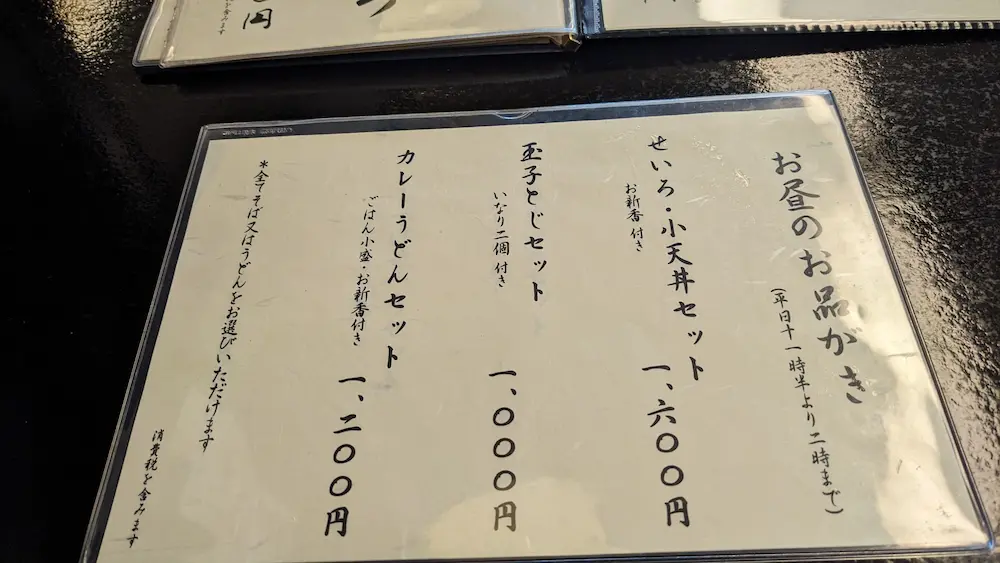 お昼のお品がき
(平日十一時半より二時まで)
せいろ・小天丼セット
お新香付き
一、六〇〇円
玉子とじセット
いなり二個付き
一、〇〇〇円
カレーうどんセット
ごはん小盛・お新香付き
一、二〇〇円
*全てそば又はうどんをお選びいただけます
消費税を含みます
円